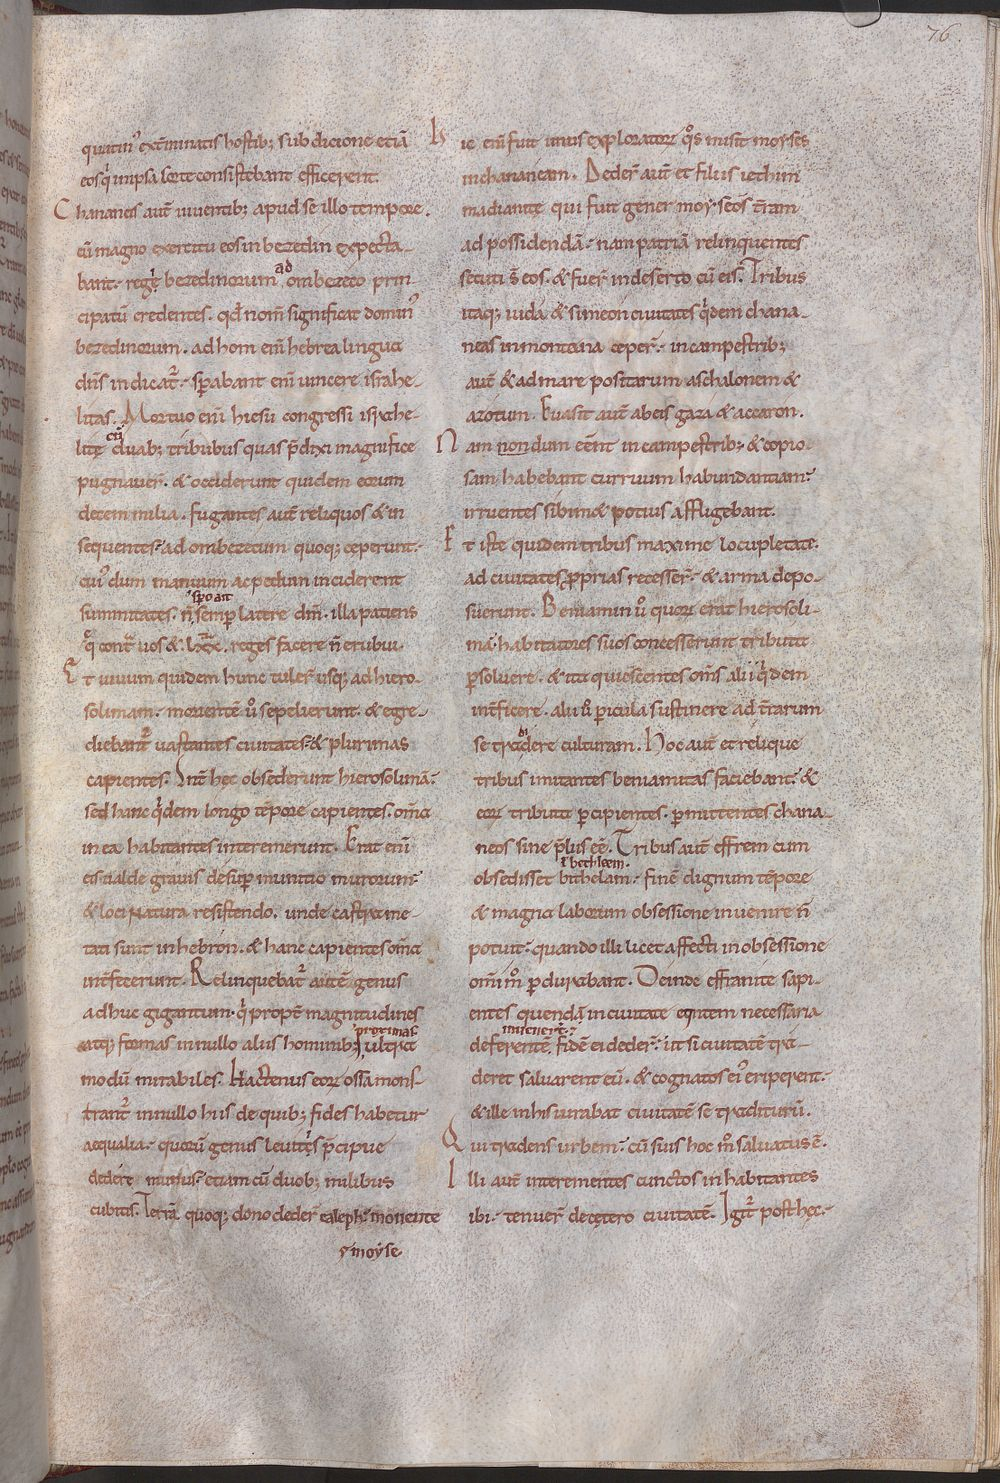 76
quatin᾽ ext̄minatis hostib; sub dicione etiā
eos q̄ in ipsa sorte consistebant efficerent.
Chananeis aut̄ viventib; apud se illo tempore.
cū magno exercitu eos in bezedin expecta-
bant. regē bezedinorum ad ombezeco prin-
cipatū credentes. qd̄ nom̄ significat domin᾽
bezedinorum. adhom eni hebrea lingua
dn̄s indicat᾽. sperabant eni vincere israhe-
litas. Mortuo enī hiesu congressi israhe-
litę cū duab; tribubus quas p̄dixi magnifice
pugnaver̄. & occiderunt quidem eorum
decem milia. fugantes aut̄ reliquos & in
sequentes. ad ombezecum quoq; ceperunt.
cui᾽ dum manuum ac pedum inciderent
summitates. spoait
n̄ semp latere dm̄. illa patiens
q̄ cont᾽ vos & lxx. reges facere n̄ erubui.
Et vivum quidem hunc tuler̄ usq; ad hiero-
solimam. morientē v̊ sepelierunt. & egre-
diebant᾽ vastantes civitates. & plurimas
capientes. Int̄ hec obsederunt hierosolimā.
sed hanc q̄dem longo tēpore capientes. om̄s
in ea habitantes interemerunt. Erat enī
eis valde gravis desup munitio murorum.
& loci natura resistendo. unde castra me-
tati sunt in hebron. & hanc capientes om̄s
int̄fecerunt. Relinquebat᾽ autē genus
adhuc gigantum. q̄ propt̄ magnitudines
proximas
atq; formas in nullo aliis hominib; ultra
modū mirabiles. Hactenus eor̄ ossa mons-
trant᾽ in nullo hiis de quib; fides habetur
aequalia. quorū genus levitęs p̄cipue
dedere munus. etiam cū duob; milibus
cubitis. Terrā quoq; dono deder̄ caleph. monente
moyse
hic enī fuit unus exploratorū q̊s misit moyses
in chananeam. Deder̄ aut̄ et filiis iethini
madianitę qui fuit gener moyseos t̄ram
ad possidendā. nam patriā relinquentes
secuti s̄ eos. & fuer̄ in deserto cū eis. Tribus
itaq; iuda & simeon civitates q̄dem chana-
neas in montana ceper̄. in campestrib;
aut̄ & ad mare positarum aschalonem &
azotum. Evasit aut̄ ab eis gaza & accaron.
Nam nondum eēnt in campestrib; & copio-
sam habebant curruum habundantiam.
irruentes sibimet potius affligebant.
Et iste quidem tribus maxime locupletate.
ad civitates pprias recesser̄. & arma depo-
suerunt. Beniamin v̊ quor̄ erat hierosoli-
ma. habitatores suos concesserunt tributa
psolvere. & ita quiescentes om̄s alii q̄dem
int̄ficere. alii v̊ picula sustinere ad t̄rarum
se tradere culturam. Hoc aut̄ et relique
tribus imitantes beniamitas faciebant. &
eor̄ tributa pcipientes. pmittentes chana-
neos sine p̄lus eē. Tribus aut̄ effrem cum
ł bethleem.
obsedisset bithelam. finē dignum tēpore
& magna laborum obsessione invenire n̄
potuit. quando illi licet affecti in obsessione
om̄i m̊ pdurabant. Deinde effranite sapi-
entes quendā in civitate euntem necessaria
invener̄.
deferentē fidē ei deder̄. ut si civitatē tra-
deret salvarent eū. & cognatos ei᾽ eriperent.
& ille in his iurabat civitatē se traditurū.
Qui tradens urbem. cū suis hoc m̊ salvatus ē.
Illi aut̄ interimentes cunctos inhabitantes
ibi. tenuer̄ decętero civitatē. Igit᾽ post hęc.